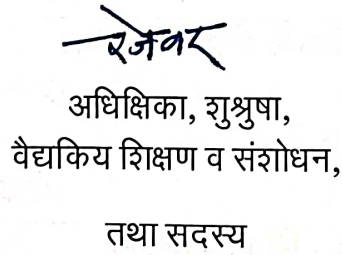 रजेवर
अधिक्षिका, शुश्रुषा,
वैद्यकिय शिक्षण व संशोधन,
तथा सदस्य